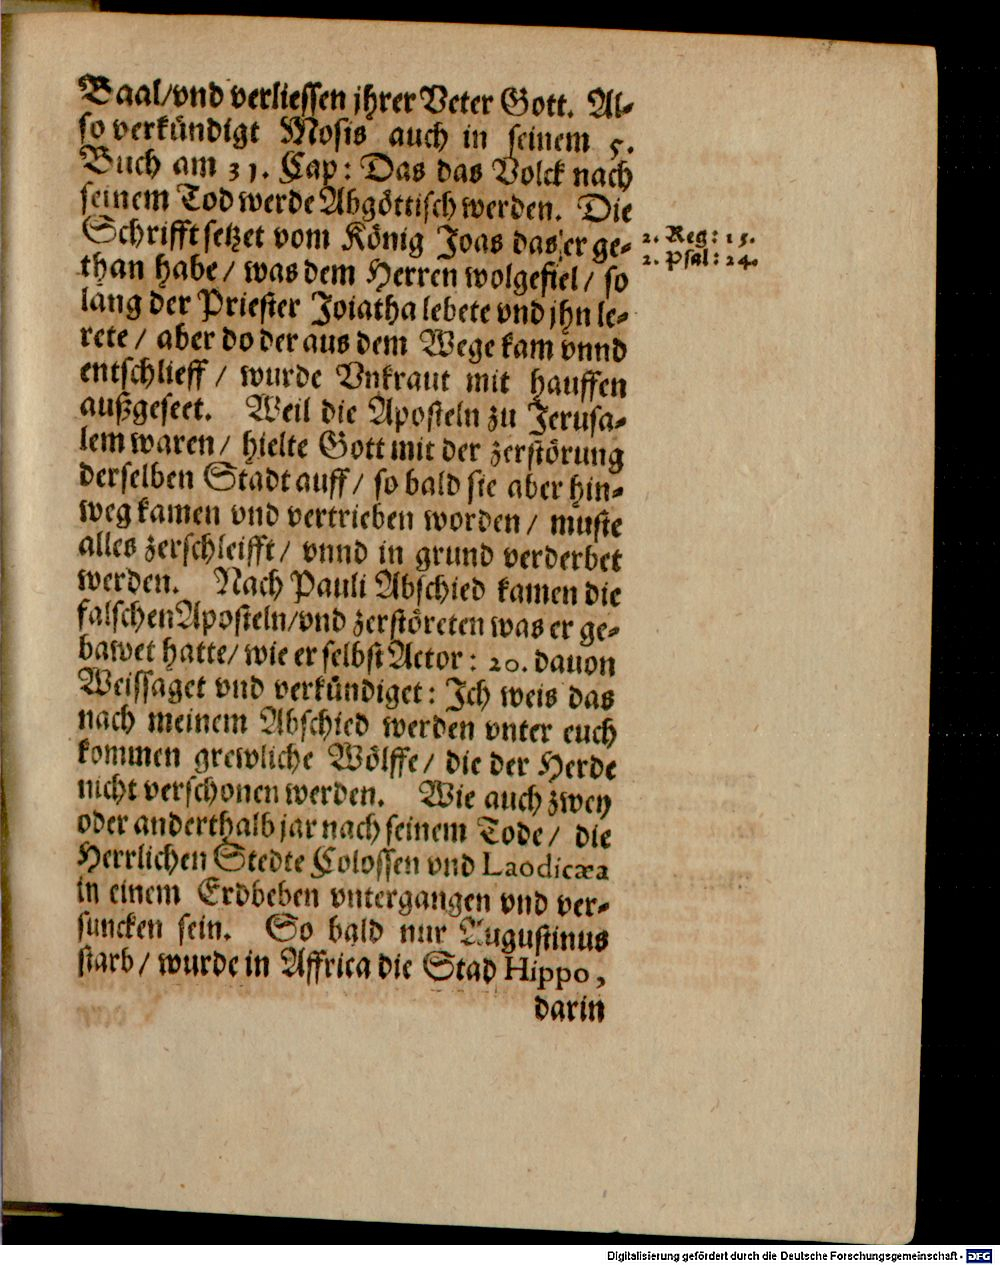 Baal/vnd verliessen jhrer Veter Gott. Al-
so verkündigt Mosis auch in seinem 5.
Buch am 31. Cap: Das das Volck nach
seinem Tod werde Abgöttisch werden. Die
Schrifft setzet vom König Joas das er ge-
2. Reg: 15.
2. Psal: 24.
than habe / was dem Herren wolgefiel / so
lang der Priester Joiatha lebete vnd jhn le-
rete / aber do der aus dem Wege kam vnnd
entschlieff / wurde Vnkraut mit hauffen
außgeseet. Weil die Aposteln zu Jerusa-
lem waren / hielte Gott mit der zerstörung
derselben Stadt auff / so bald sie aber hin-
weg kamen vnd vertrieben worden / muste
alles zerschleifft / vnnd in grund verderbet
werden. Nach Pauli Abschied kamen die
falschen Aposteln/vnd zerstöreten was er ge-
bawet hatte/ wie er selbst Actor: 20. dauon
Weissaget vnd verkündiget: Ich weis das
nach meinem Abschied werden vnter euch
kommen grewliche Wölffe / die der Herde
nicht verschonen werden. Wie auch zwey
oder anderthalb jar nach seinem Tode / die
Herrlichen Stedte Colossen vnd Laodicæa
in einem Erdbeben vntergangen vnd ver-
suncken sein. So bald nur Augustinus
starb / wurde in Affrica die Stad Hippo,
darin
Digitalisierung gefördert durch die Deutsche Forschungsgemeinschaft - DFG